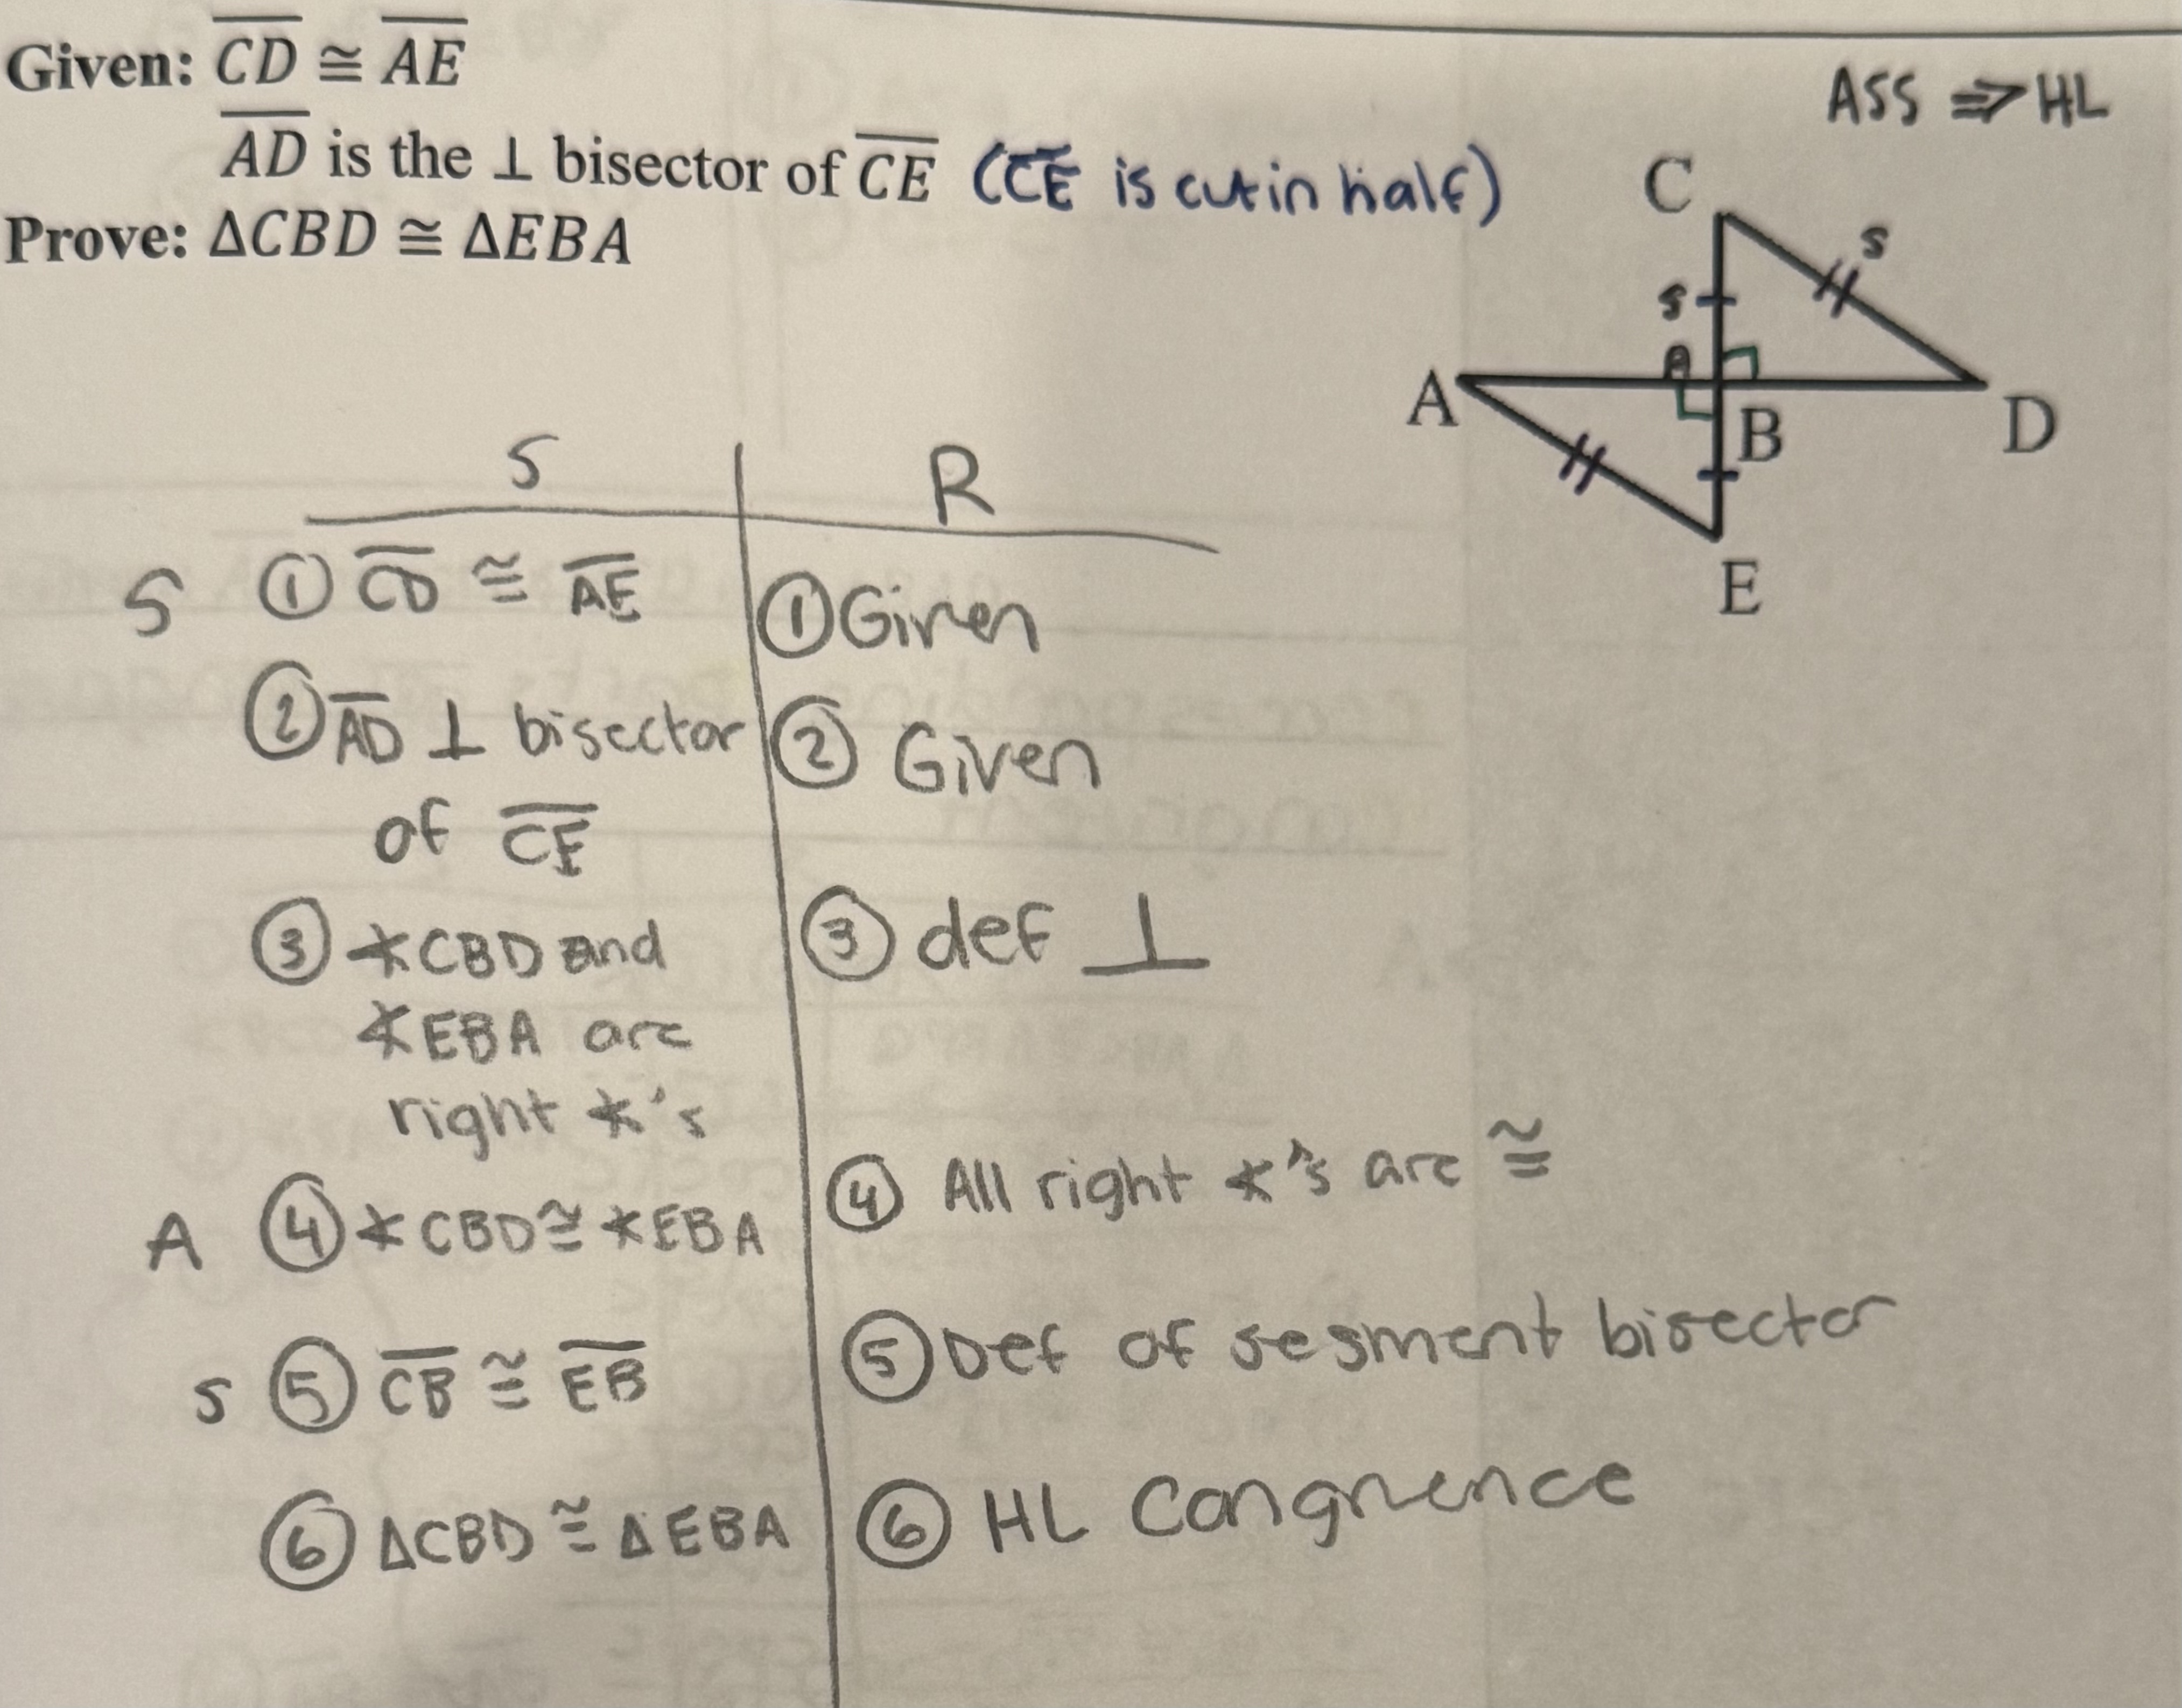 Given: C͞D ≅ A͞E
ASS ⇒ HL
A͞D is the ⊥ bisector of C͞E (C͞E is cut in half)
Prove: ΔCBD ≅ ΔEBA
C
S
S
A
A
B
D
E
S R
S ① C͞D ≅ A͞E ① Given
② A͞D ⊥ bisector ② Given
of C͞E
③ ∡CBD and ③ def ⊥
∡EBA are
right ∡'s
A ④ ∡CBD ≅ ∡EBA ④ All right ∡'s are ≅
S ⑤ C͞B ≅ E͞B ⑤ Def of segment bisector
⑥ ΔCBD ≅ ΔEBA ⑥ HL Congruence